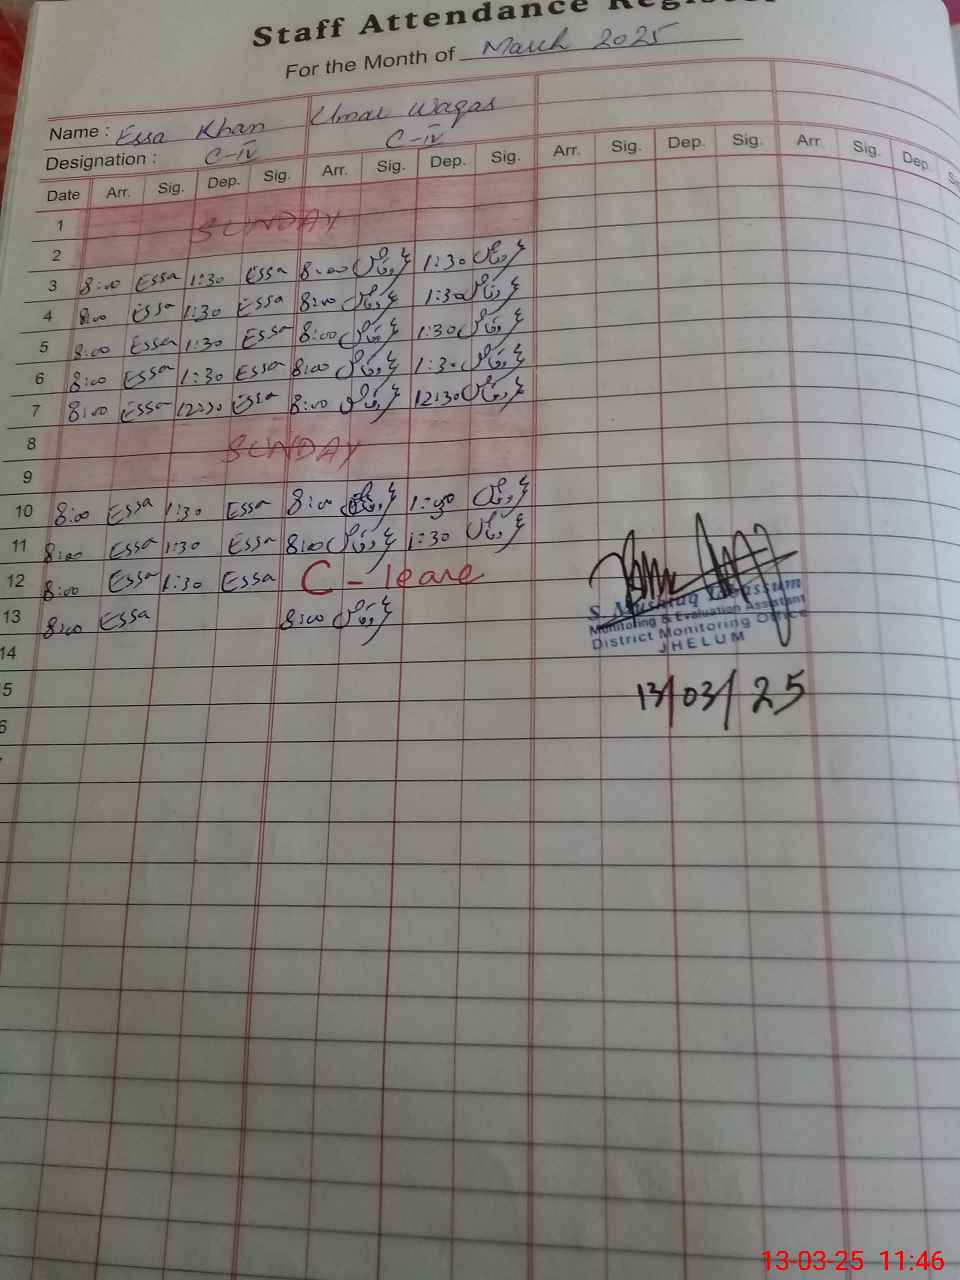 Staff Attendance Register
For the Month of March 2025
Name : Essa Khan Umar Waqas
Designation : C-IV C-IV
Date Arr. Sig. Dep. Sig. Arr. Sig. Dep. Sig. Arr. Sig. Dep. Sig. Arr. Sig. Dep.
1
SUNDAY
2
3 8:00 Essa 1:30 Essa 8:00 وقاص 1:30 وقاص
4 8:00 Essa 1:30 Essa 8:00 وقاص 1:30 وقاص
5 8:00 Essa 1:30 Essa 8:00 وقاص 1:30 وقاص
6 8:00 Essa 1:30 Essa 8:00 وقاص 1:30 وقاص
7 8:00 Essa 12:30 Essa 8:00 وقاص 12:30 وقاص
8
SUNDAY
9
10 8:00 Essa 1:30 Essa 8:00 وقاص 1:30 وقاص
11 8:00 Essa 1:30 Essa 8:00 وقاص 1:30 وقاص
12 8:00 Essa 1:30 Essa C - leave
13 8:00 Essa 8:00 وقاص
S. Mushtaq Tabassum
Monitoring & Evaluation Assistant
District Monitoring Office
JHELUM
14
5
13/03/25
6
13-03-25 11:46